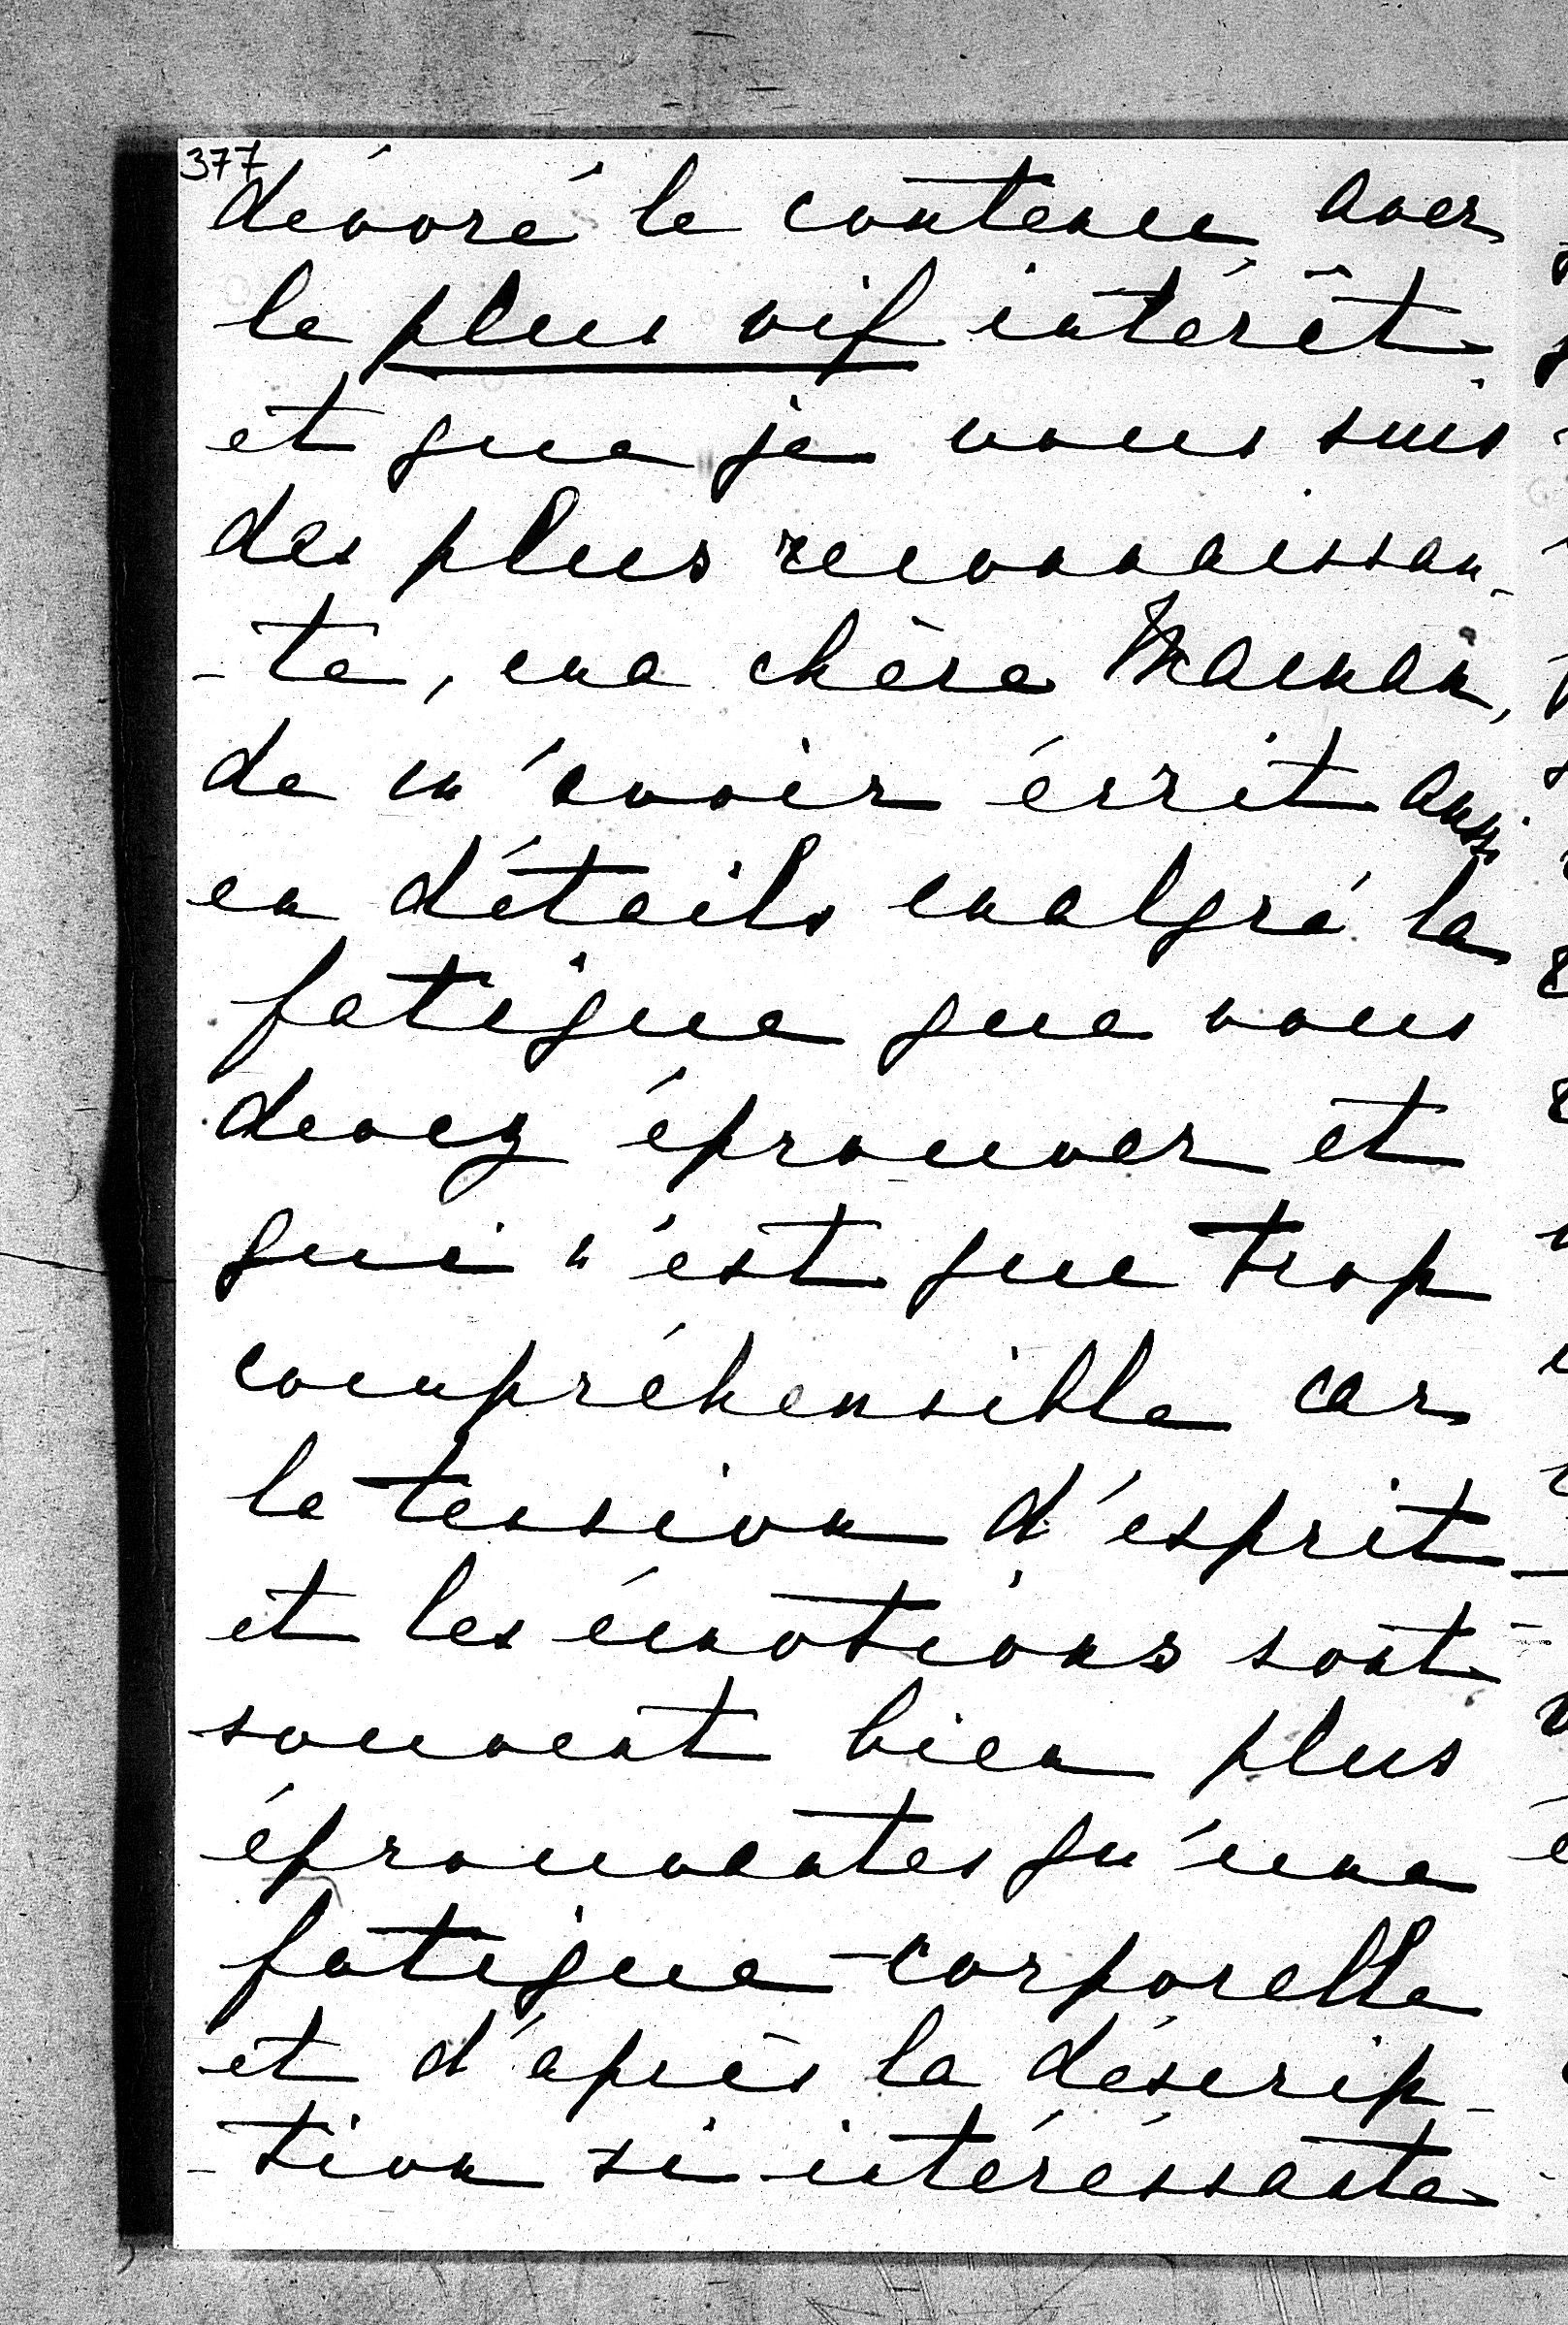 377
dévoré le contenu avec
le plus vif intérêt
et que je vous suis
des plus reconnaissan-
-te, ma chère Maman,
de m'avoir écrit aussi
en détails malgré la
fatigue que vous
devez éprouver et
qui n'est que trop
compréhensible car
la tension d'esprit
et les émotions sont
souvent bien plus
éprouvantes qu'une
fatigue corporelle
et d'après la déscrip-
-tion si intéréssante